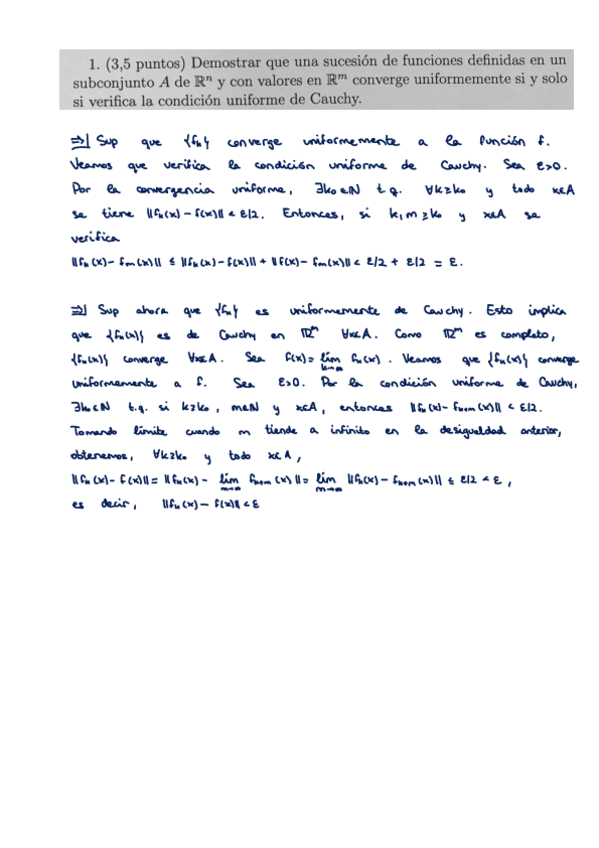 1. (3,5 puntos) Demostrar que una sucesión de funciones definidas en un
subconjunto A de ℝⁿ y con valores en ℝᵐ converge uniformemente si y solo
si verifica la condición uniforme de Cauchy.
⇒| Sup que {fₖ} converge uniformemente a la función f.
Veamos que verifica la condición uniforme de Cauchy. Sea ε>0.
Por la convergencia uniforme, ∃k₀∈ℕ t.q. ∀k≥k₀ y todo x∈A
se tiene ||fₖ(x) - f(x)|| < ε/2. Entonces, si k,m ≥ k₀ y x∈A se
verifica
||fₖ(x) - fₘ(x)|| ≤ ||fₖ(x) - f(x)|| + ||f(x) - fₘ(x)|| < ε/2 + ε/2 = ε.
⇒| Sup ahora que {fₖ} es uniformemente de Cauchy. Esto implica
que {fₖ(x)} es de Cauchy en ℝᵐ ∀x∈A. Como ℝᵐ es completo,
{fₖ(x)} converge ∀x∈A. Sea f(x) = lím k→∞ fₖ(x). Veamos que {fₖ(x)} converge
uniformemente a f. Sea ε>0. Por la condición uniforme de Cauchy,
∃k₀∈ℕ t.q. si k≥k₀, m∈ℕ y x∈A, entonces ||fₖ(x) - fₖ₊ₘ(x)|| < ε/2.
Tomando límite cuando m tiende a infinito en la desigualdad anterior,
obtenemos, ∀k≥k₀ y todo x∈A,
||fₖ(x) - f(x)|| = ||fₖ(x) - lím m→∞ fₖ₊ₘ(x)|| = lím m→∞ ||fₖ(x) - fₖ₊ₘ(x)|| ≤ ε/2 < ε,
es decir, ||fₖ(x) - f(x)|| < ε